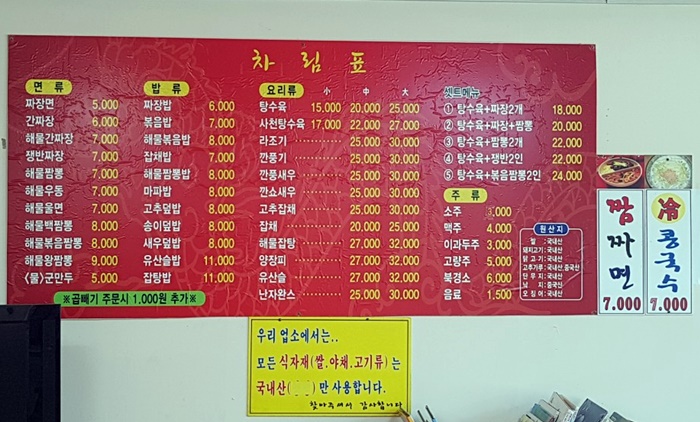 차 림 표
면 류
짜장면 5,000
간짜장 6,000
해물간짜장 7,000
쟁반짜장 7,000
해물짬뽕 7,000
해물우동 7,000
해물울면 7,000
해물백짬뽕 8,000
해물볶음짬뽕 8,000
해물왕짬뽕 9,000
(물)군만두 5,000
※곱빼기 주문시 1.000원 추가※
밥 류
짜장밥 6,000
볶음밥 7,000
해물볶음밥 8,000
잡채밥 7,000
해물짬뽕밥 8,000
마파밥 8,000
고추덮밥 8,000
송이덮밥 8,000
새우덮밥 8,000
유산슬밥 11,000
잡탕밥 11,000
요리류 小 中 大
탕수육 15,000 20,000 25,000
사천탕수육 17,000 22,000 27,000
라조기 25,000 30,000
깐풍기 25,000 30,000
깐풍새우 25,000 30,000
깐쇼새우 25,000 30,000
고추잡채 25,000 30,000
잡채 20,000 25,000
해물잡탕 27,000 32,000
양장피 27,000 32,000
유산슬 27,000 32,000
난자완스 25,000 30,000
셋트메뉴
① 탕수육+짜장2개 18,000
② 탕수육+짜장+짬뽕 20,000
③ 탕수육+짬뽕2개 22,000
④ 탕수육+쟁반2인 22,000
⑤ 탕수육+볶음짬뽕2인 24,000
주 류
소주 ,000
맥주 4,000
이과두주 3,000
고량주 5,000
북경소 6,000
음료 1,500
원산지
쌀 : 국내산
돼지고기 : 국내산
닭 고 기 : 국내산
고추가루 : 국내산,중국산
단 무 지 : 국내산
낙 지 : 중국산
오 징 어 : 국내산
짬짜면
7.000
冷콩국수
7.000
우리 업소에서는..
모든 식자재(쌀.야채.고기류)는
국내산( )만 사용합니다.
찾아주셔서 감사합니다